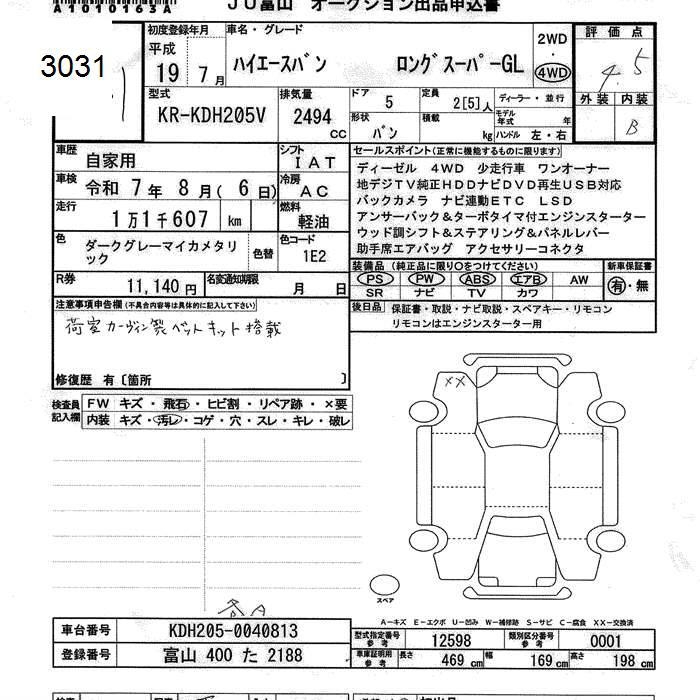 A1010163A
JU富山 オークション出品申込書
3031
初度登録年月
平成
19年 7月
車名・グレード
ハイエースバン ロングスーパーGL
2WD
・
4WD
評価点
4.5
外装 内装
B
型式
KR-KDH205V
排気量
2494
cc
ドア 5
形状 バン
定員 2[5]人
積載 kg
ディーラー・並行
モデル年式 年
ハンドル 左・右
車歴 自家用
シフト IAT
車検 令和 7年 8月( 6日)
冷房 AC
走行 1万1千607 km
燃料 軽油
色 ダークグレーマイカメタリック
色替
色コード 1E2
R券 11,140円
名変通知期限 月 日
セールスポイント(正常に機能するものに限ります)
ディーゼル 4WD 少走行車 ワンオーナー
地デジTV純正HDDナビDVD再生USB対応
バックカメラ ナビ連動ETC LSD
アンサーバック&ターボタイマ付エンジンスターター
ウッド調シフト&ステアリング&パネルレバー
助手席エアバッグ アクセサリーコネクタ
装備品(純正品に限り〇をつけてください)
新車保証書
PS PW ABS エアB AW
SR ナビ TV カワ
有・無
後日品 保証書・取説・ナビ取説・スペアキー・リモコン
リモコンはエンジンスターター用
注意事項申告欄(不具合内容等は具体的に記入して下さい)
荷室カーヴィン製ベットキット搭載
修復歴 有〔箇所 〕
検査員記入欄
FW キズ・飛石・ヒビ割・リペア跡・×要
内装 キズ・汚レ・コゲ・穴・スレ・キレ・破レ
XX
スペア
A-キズ E-エクボ U-凹み W-補修跡 S-サビ C-腐食 XX-交換済
車台番号 KDH205-0040813
登録番号 富山 400 た 2188
型式指定番号 参考 12598
類別区分番号 参考 0001
車庫証明用 参考 長さ 469 cm 幅 169 cm 高さ 198 cm